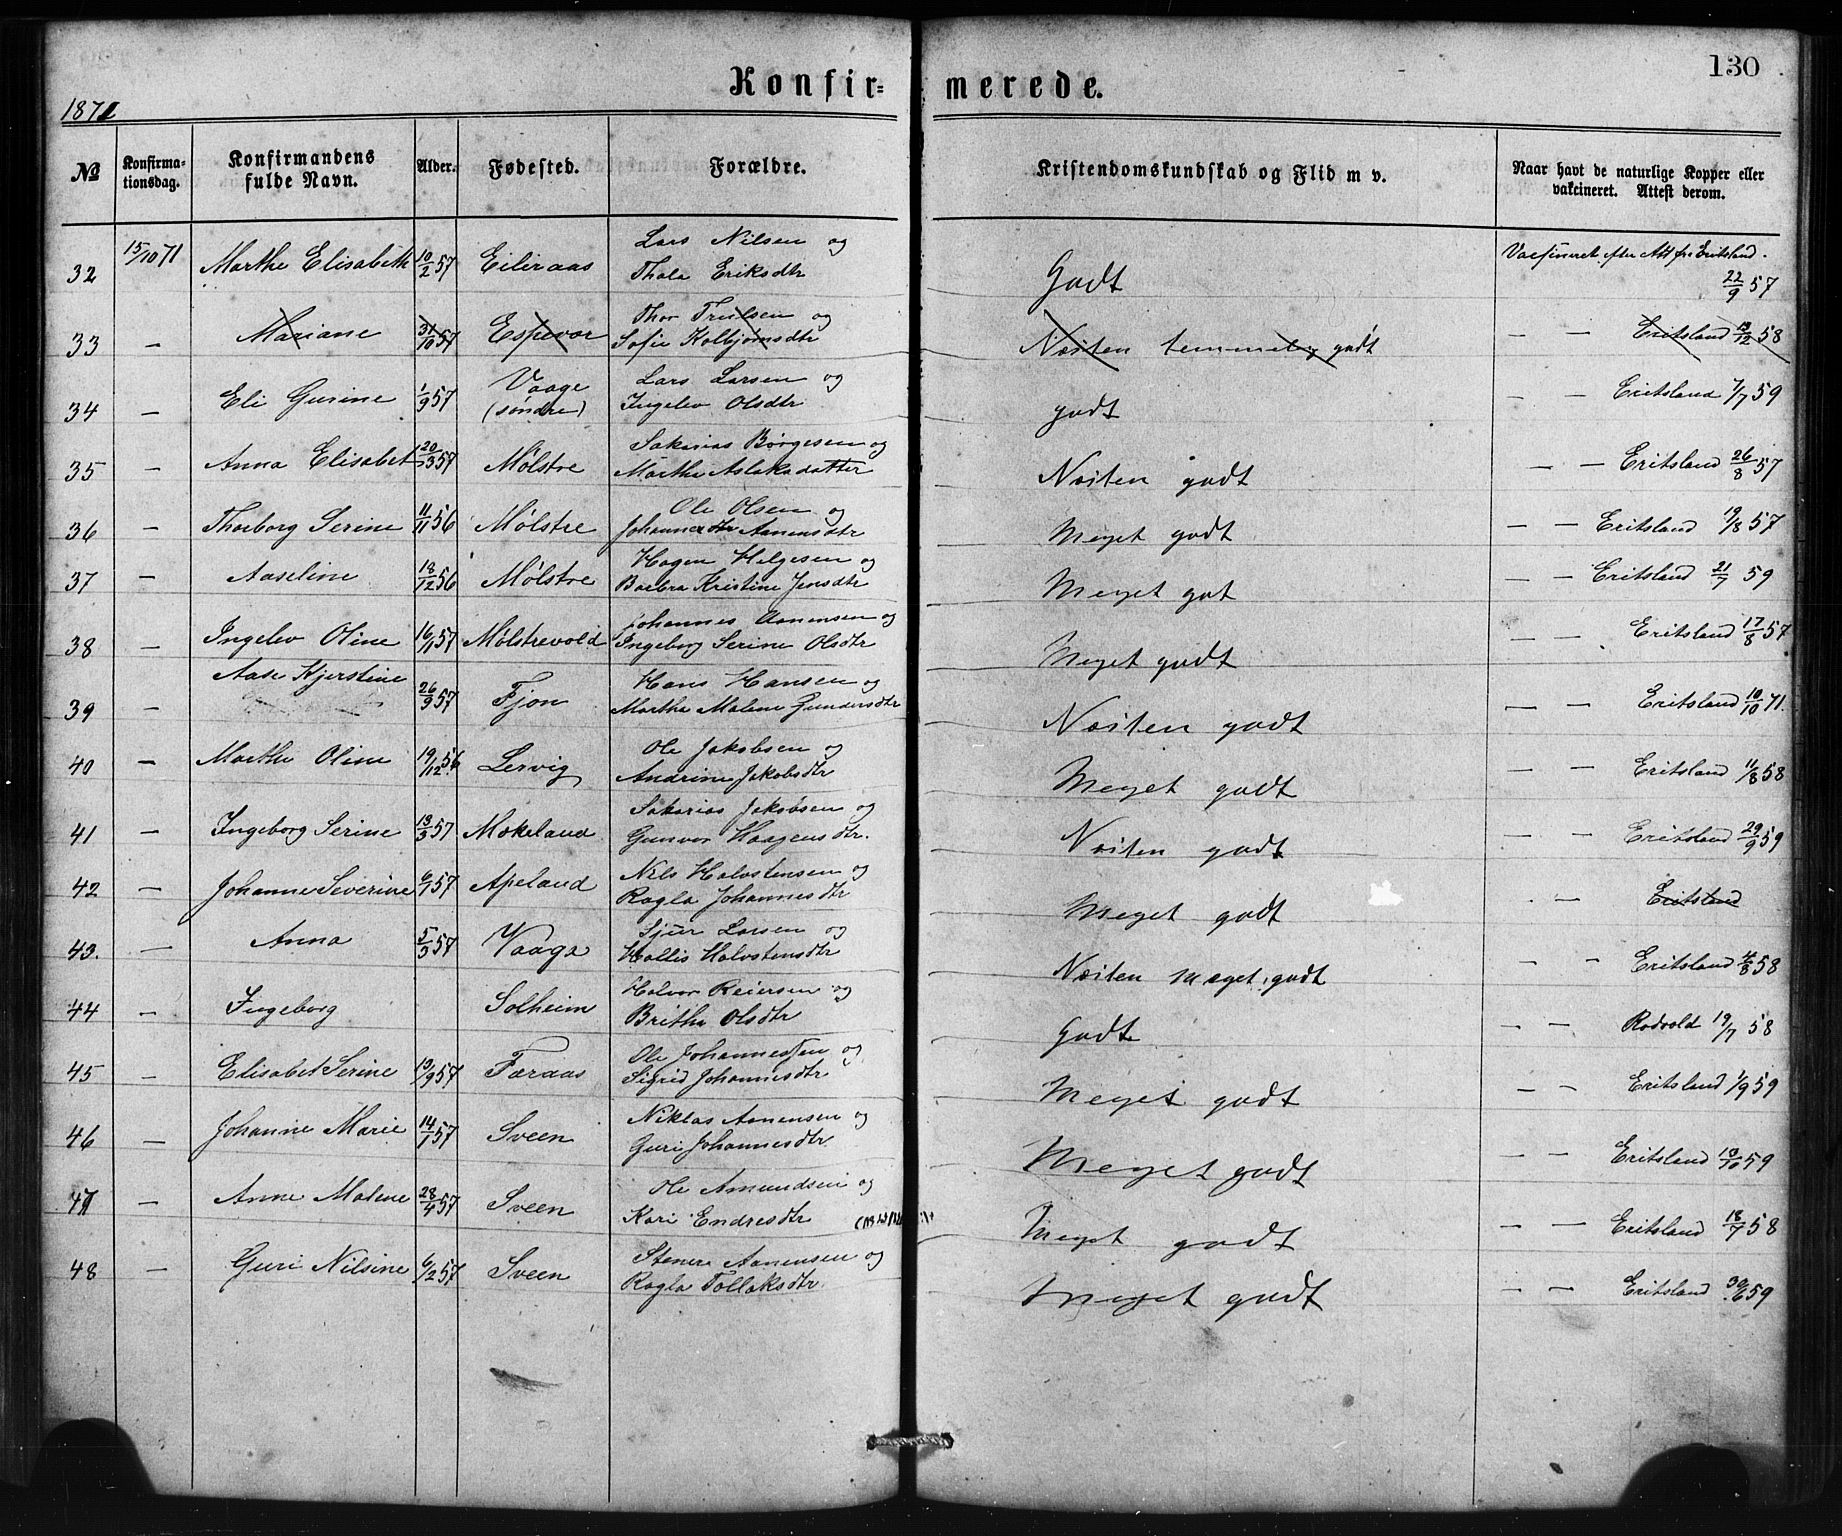 130
Konfir= merede.
1871
No Konfirma=tionsdag. Konfirmandens fulde Navn. Alder. Fødested. Forældre. Kristendomskundskab og Flid m v. Naar havt de naturlige Kopper eller vakcineret. Attest derom.
32 15/10 71 Marthe Elisabeth 10/2 57 Eiliraas Lars Nilsen og Godt Vacsineret efter Att fra Eritsland. 22/9 57
Thala Eriksdtr
33 — Mariane 31/10 57 Espevær Thor Trulsen og Næsten temmelig godt — — Eritsland 13/12 58
Sofie Kolbjørnsdtr
34 — Eli Gurine 1/9 57 Vaage (søndre) Lars Larsen og godt — — Eritsland 7/7 59
Ingelev Olsdtr
35 — Anna Elisabet 20/3 57 Mølstre Sakarias Børgesen og Næsten godt — — Eritsland 26/8 57
Marthe Aslaksdatter
36 — Thorborg Serine 11/11 56 Mølstre Ole Olsen og Meget godt — — Eritsland 19/8 57
Aanensdtr
37 — Aaseline 18/12 56 Mølstre Hagen Helgesen og Meget got — — Eritsland 21/7 59
Barbra Kristine Jensdtr
38 — Ingelev Oline 16/1 57 Mølstrevold Johannes Aanensen og Meget godt — — Eritsland 17/8 57
Ingeborg Serine Olsdtr
39 — Aase Kjerstine 26/9 57 Fjon Hans Hansen og Næsten godt — — Eritsland 10/10 71.
Martha Malene Gundersdtr
40 — Marthe Oline 19/12 56 Lervig Ole Jakobsen og Meget godt — — Eritsland 11/8 58
Andrine Jakobsdtr
41 — Ingeborg Serine 13/3 57 Mækeland Sakarias Jakobsen og Næsten godt — — Eritsland 29/9 59
Gunvor Haagensdtr.
42 — Johanne Severine 6/1 57 Apeland Nils Halvstensen og Meget godt — Eritsland
Ragla Johannesdtr
43. — Anna 5/3 57 Vaage Sjur Larsen og Næsten meget godt — — Eritsland 4/8 58
Hallis Halvstensdtr
44 — Ingeborg Solheim Halvor Reiersen og Godt — — Rodvold 19/7 58
Britha Olsdtr
45 — Elisabet Serine 13/9 57 Færaas Ole Johannessen og Meget godt — — Eritsland 1/9 59
Sigrid Johannesdtr
46 — Johanne Marie 14/1 57 Sveen Niklas Aanensen og Meget godt — — Eritsland 13/10 59
Guri Johannesdtr
47 — Anne Malene 28/4 57 Sveen Ole Amundsen og Meget godt — — Eritsland 18/7 58
Kari Endresdtr
48 — Guri Nilsine 6/2 57 Sveen Stener Aanensen og Meget godt — — Eritsland 30/6 59
Ragla Tollaksdtr